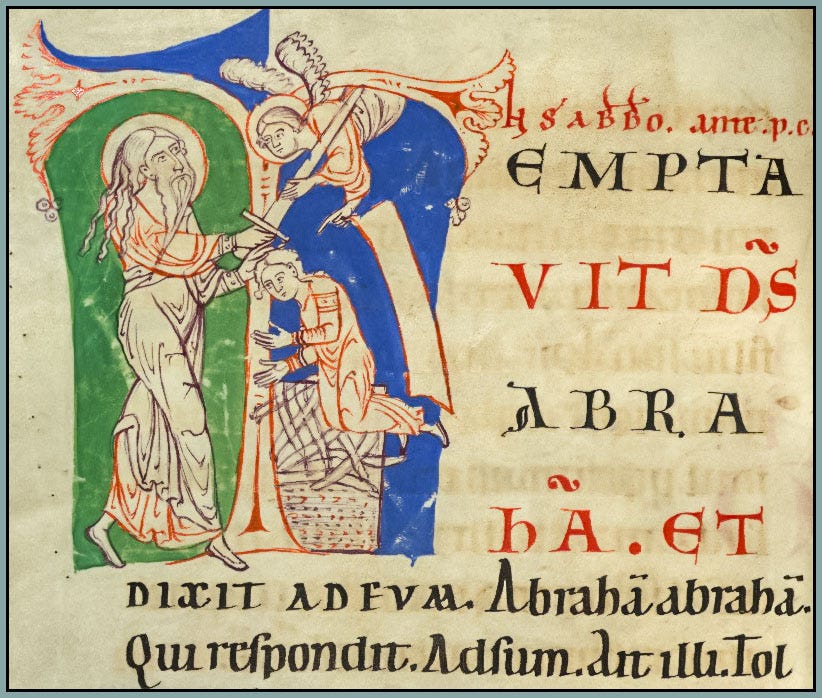 sabbo. ante. p. c.
T EMPTA
VIT DN̄S
ABRA
HĀ. ET
DIXIT AD EVM. Abrahā abrahā.
Qui respondit. Adsum. Ait illi. Tol